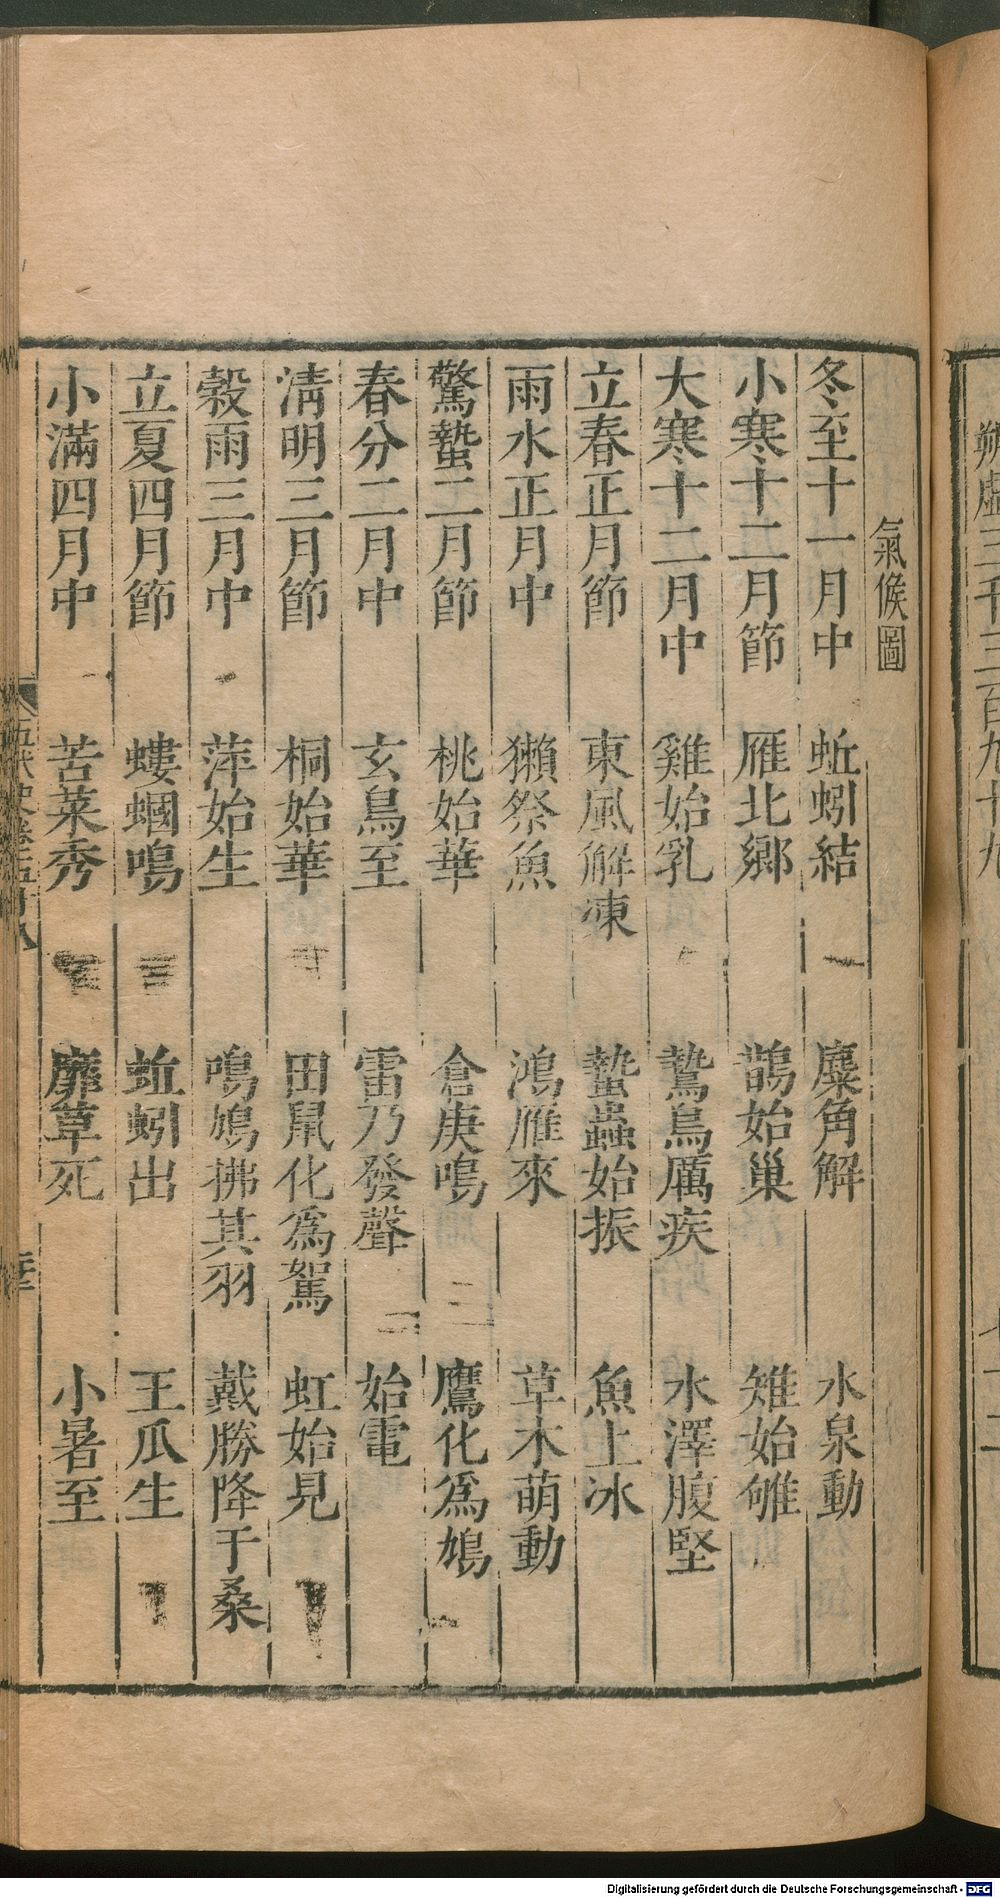 氣候圖
冬至十一月中 蚯蚓結 麋角解 水泉動
小寒十二月節 雁北鄉 鵲始巢 雉始雊
大寒十二月中 雞始乳 鷙鳥厲疾 水澤腹堅
立春正月節 東風解凍 蟄蟲始振 魚上冰
雨水正月中 獺祭魚 鴻雁來 草木萌動
驚蟄二月節 桃始華 倉庚鳴 鷹化為鳩
春分二月中 玄鳥至 雷乃發聲 始電
清明三月節 桐始華 田鼠化為鴽 虹始見
穀雨三月中 萍始生 鳴鳩拂其羽 戴勝降于桑
立夏四月節 螻蟈鳴 蚯蚓出 王瓜生
小滿四月中 苦菜秀 靡草死 小暑至
五代史卷五十八
朔虛三千三百九十九
Digitalisierung gefördert durch die Deutsche Forschungsgemeinschaft - DFG